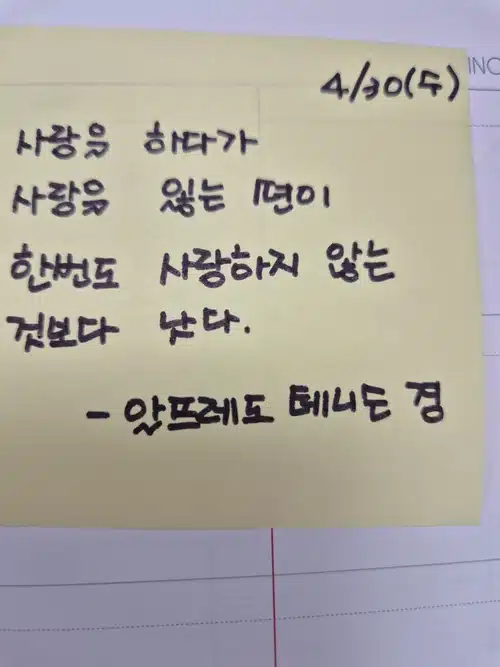 INC
4/30(수)
사랑을 하다가
사랑을 잃는 편이
한번도 사랑하지 않는
것보다 낫다.
- 알프레도 테니슨 경